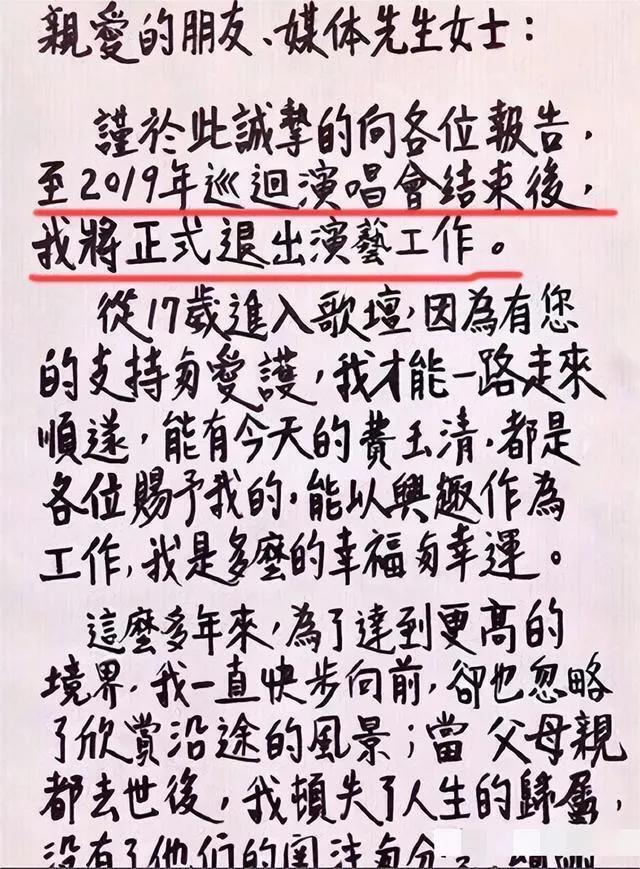 親愛的朋友、媒体先生女士：
謹於此誠摯的向各位報告，
至2019年巡迴演唱會結束後，
我將正式退出演藝工作。
從17歲進入歌壇，因為有您
的支持与愛護，我才能一路走來
順遂，能有今天的費玉清，都是
各位賜予我的，能以興趣作為
工作，我是多麼的幸福与幸運。
這麼多年來，為了達到更高的
境界，我一直快步向前，卻也忽略
了欣賞沿途的風景；當父母親
都去世後，我頓失了人生的歸屬，
沒有了他們的関注与分